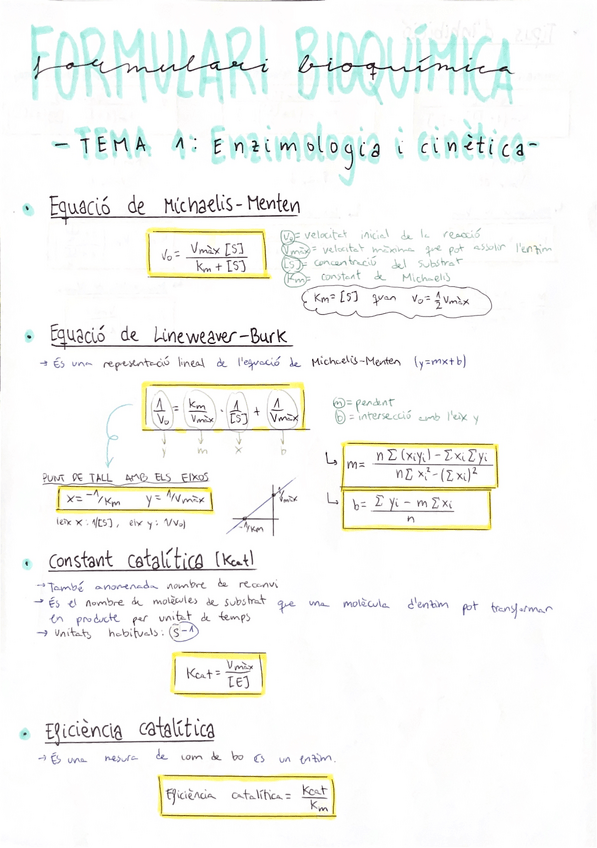 FORMULARI BIOQUÍMICA
formulari bioquímica
- TEMA 1: Enzimologia i cinètica -
• Equació de Michaelis-Menten
V₀ = Vmàx [S] / Km + [S]
V₀ = velocitat inicial de la reacció
Vmàx = velocitat màxima que pot assolir l'enzim
[S] = concentració del substrat
Km = constant de Michaelis
Km = [S] quan V₀ = 1/2 Vmàx
• Equació de Lineweaver-Burk
→ És una representació lineal de l'equació de Michaelis-Menten (y=mx+b)
1/V₀ = Km/Vmàx · 1/[S] + 1/Vmàx
y m x b
m = pendent
b = intersecció amb l'eix y
↳ m = n Σ (xᵢyᵢ) - Σxᵢ Σyᵢ / n Σ xᵢ² - (Σxᵢ)²
↳ b = Σ yᵢ - m Σxᵢ / n
PUNT DE TALL AMB ELS EIXOS
x = -1/Km y = 1/Vmàx
(eix x: 1/[S], eix y: 1/V₀)
1/Vmàx
-1/Km
• Constant catalítica (Kcat)
→ També anomenada nombre de recanvi
→ És el nombre de molècules de substrat que una molècula d'enzim pot transformar
en producte per unitat de temps
→ Unitats habituals: s⁻¹
Kcat = Vmàx / [E]
• Eficiència catalítica
→ És una mesura de com de bo és un enzim.
Eficiència catalítica = Kcat / Km